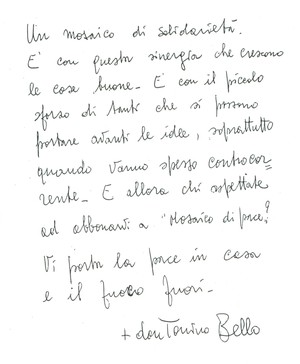 Un mosaico di solidarietà.
E' con questa sinergia che crescono
le cose buone - E' con il piccolo
sforzo di tanti che si possono
portare avanti le idee, soprattutto
quando vanno spesso controcor-
rente - E allora chi aspettate
ad abbonarvi a "Mosaico di pace?
Vi porta la pace in casa
e il fuoco fuori -
+ don Tonino Bello